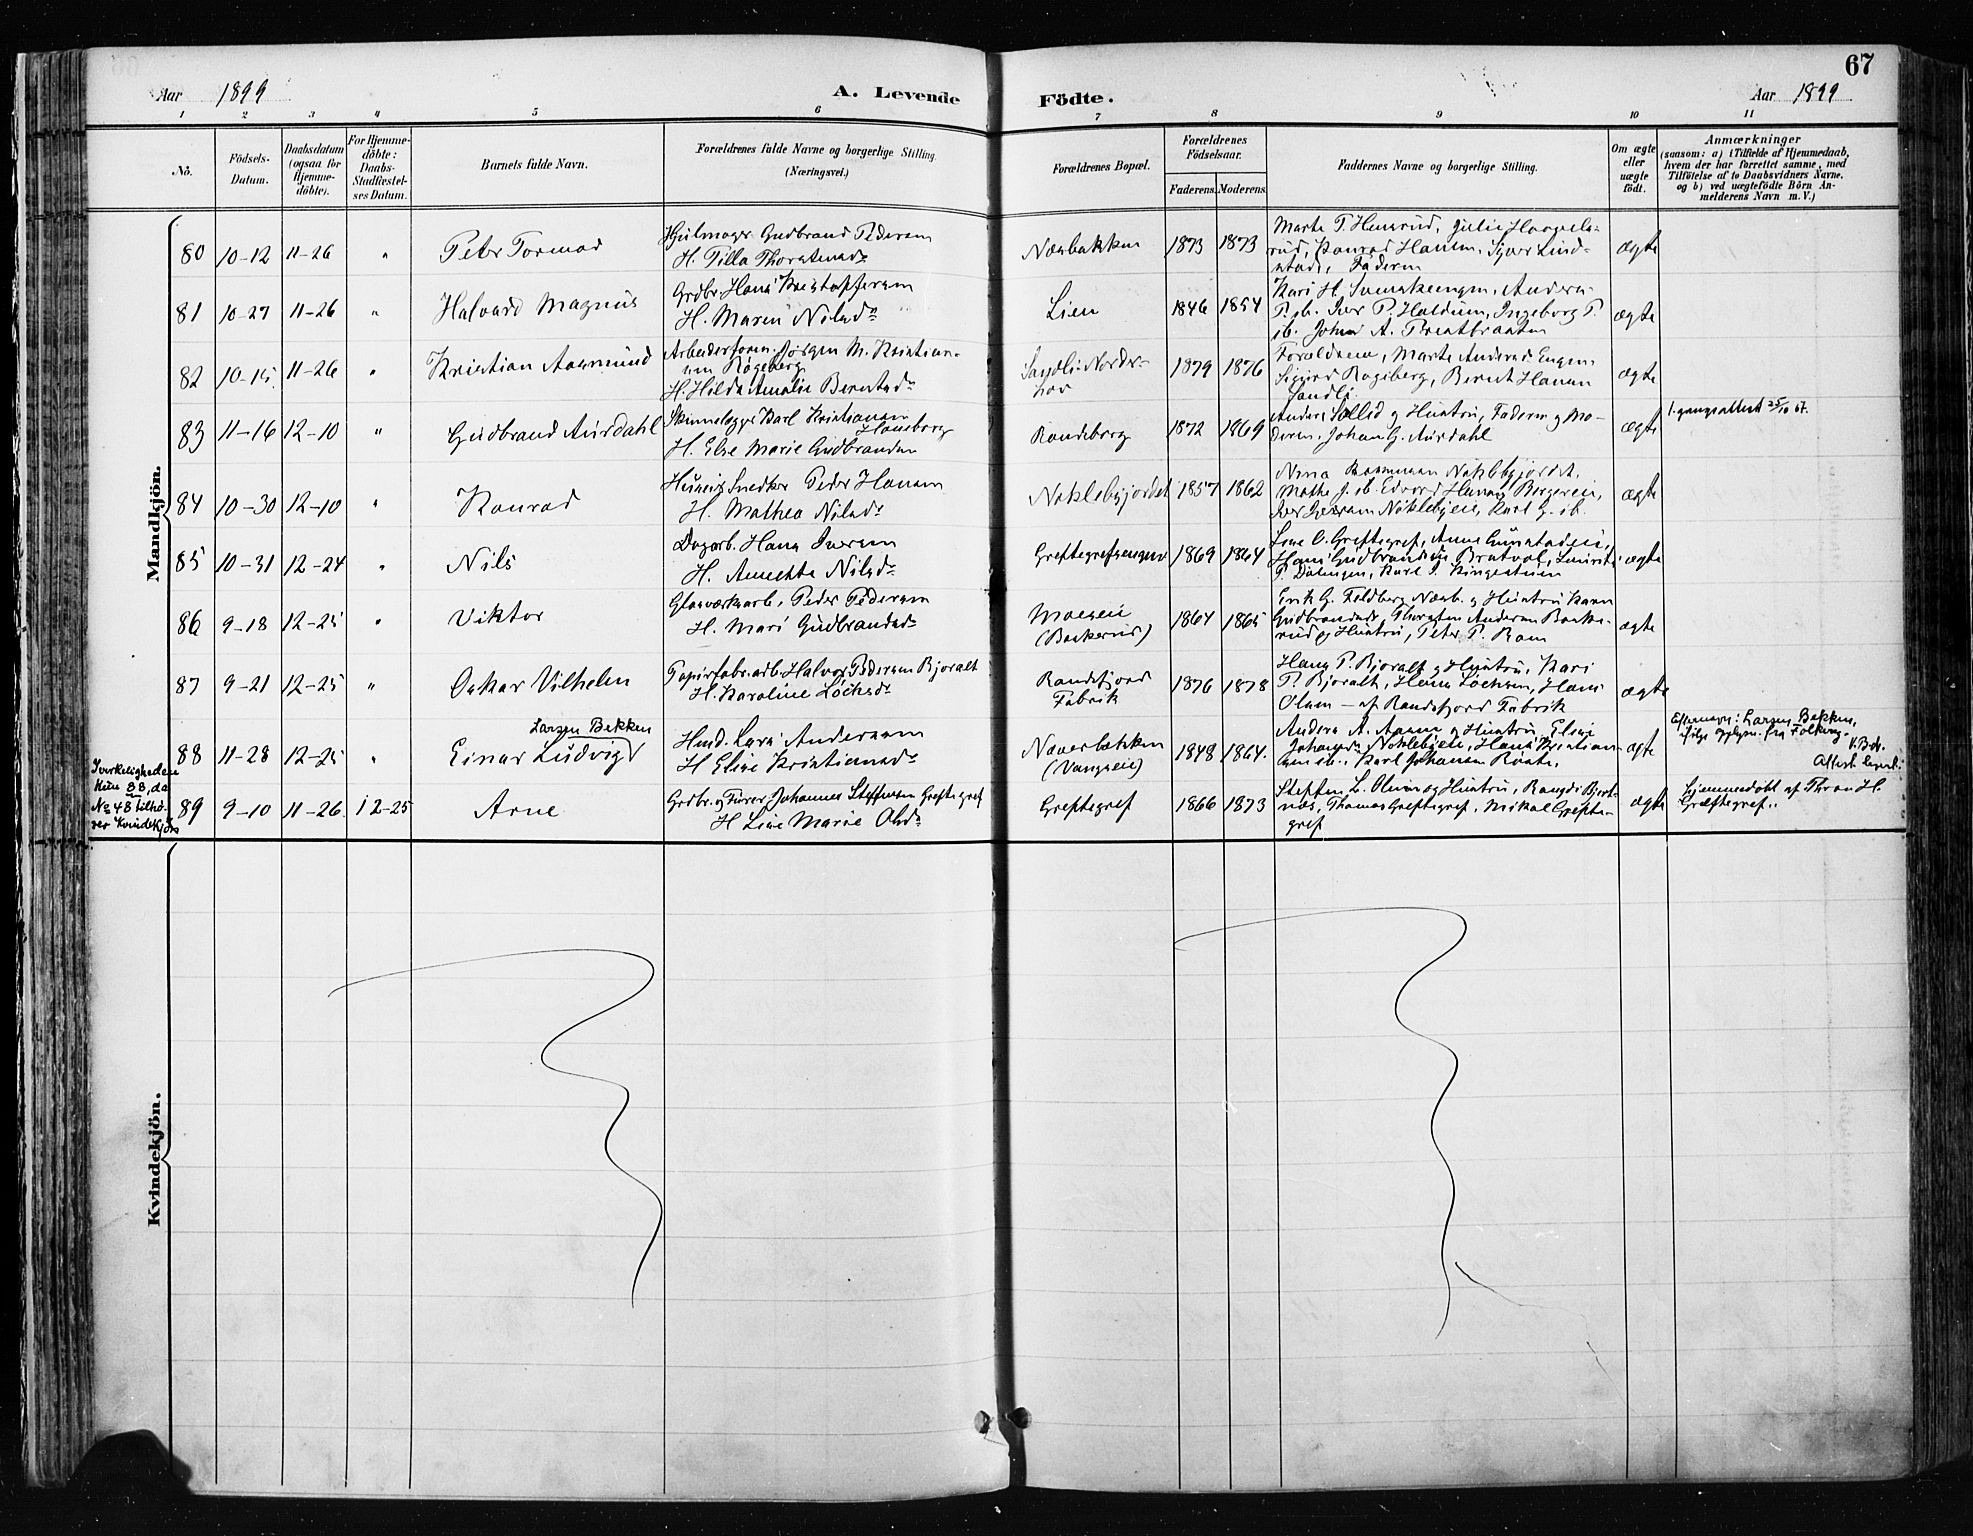 67
Aar 1899 A. Levende Födte. Aar 1899
1 2 3 4 5 6 7 8 9 10 11
No.
Födsels-Datum.
Daabsdatum (ogsaa för Hjemme-döbte).
For Hjemme-döbte: Daabs-Stadfæstel-ses Datum.
Barnets fulde Navn.
Forældrenes fulde Navne og borgerlige Stilling. (Næringsvei.)
Forældrenes Bopæl.
Forældrenes Födselsaar.
Faderens. Moderens.
Faddernes Navne og borgerlige Stilling.
Om ægte eller uægte födt.
Anmærkninger
(saasom: a) i Tilfælde af Hjemmedaab,
hvem der har forrettet samme, med
Tilföielse af to Daabsvidners Navne.
og b) ved uægtefödte Börn An-
melderens Navn m. V.)
Mandkjön.
80 10-12 11-26 " Peter Tormod
Hjulmager Gudbrand Pedersen
H. Tilla Thorstensdr
Næsbakken 1873 1873
Marte T. Hensrud, Julie
rud, Konrad Hansen, Syver Lind-
stad, Faderen
ægte
81 10-27 11-26 " Halvard Magnus
Grdbr. Hans Kristoffersen
H. Maren Nilsdr
Lien 1846 1854
Kari H. Svenskeengen, Anders
P. ib. Iver P. Haldum, Ingeborg P.
ib. Johan A.
ægte
82 10-15 11-26 " Kristian Aasmund
Arbeiderform. Jørgen M. Kristian-
sen Røgeberg
H. Hilda Amalie Berntsdr
Sandli Norder-
hov
1879 1876
Forældrene, Marte Andersd. Engen
Sigurd Røgeberg, Bernt Hansen
Sandli
ægte
83 11-16 12-10 " Gudbrand Aurdahl
Karl Kristiansen
H. Else Marie Gudbrandsdr
Randsborg 1872 1869
Anders Sølled og Hustru, Faderen og Mo-
deren, Johan G. Aurdahl
ægte
1. gangs attest 25/10 67.
84 10-30 12-10 " Konrad
Snedker Peder Hansen
H. Mathea Nilsdr
Noklebyjordet 1857 1862
Nina Noklebyjordet,
Mathe J. ib. Edvard Hansen Bergerein,
Iver Iversen Noklebyeie, Karl G. ib.
ægte
85 10-31 12-24 " Nils
Dagarb. Hans Iversen
H. Annette Nilsdr
Greftegrefsengen 1869 1864
Lone O. Greftegref, Anne
Hans Gudbrandsen Bratval, Laurits
P. Karl J. Ringestuen
ægte
86 9-18 12-25 " Viktor
Glasværksarb. Peder Pedersen
H. Mari Gudbrandsdr
Moeseie
(Bækerud)
1864 1865
Erik G. Foldberg Næsb. og Hustru Karen
Gudbrandsdr, Thorsten Andersen Bæke-
rud og Hustru, Peter P. Roen
ægte
87 9-21 12-25 " Oskar Vilhelm
Papirfabr.arb. Halvor Pedersen Bjoralt
H. Karoline Løchsdr
Randsfjord
Fabrik
1876 1878
Hans P. Bjoralt og Hustru, Kari
P. Bjoralt, Hans Løchsen, Hans
Olsen — af Randsfjord Fabrik
ægte
88 11-28 12-25 " Einar Ludvig Larsen Bekken
Husd. Lars Andersen
H Eline Kristiansdr
Næverbækken
(Vangseie)
1848 1864.
Anders A. Aasen og Hustru, Eline
Johansdr Noklebyeie, Hans Kristian-
sen ib., Karl Johansen Røste.
ægte
Efternavn: Larsen Bekken,
ifølge opplysn. fra Folkereg.
V. Bdr.
Attest
I virkeligheden
kun 88, da
No 48 tilhø-
rer Kvindekjøn
89 9-10 11-26 12-25 Arne
Grdbr. og Furer Johannes Steffensen Greftegref
H Line Marie Olsdr
Greftegref 1866 1873
Steffen L. Olsen og Hustru, Randi Bjert-
næs, Thomas Greftegref, Mikal Grefte-
gref
ægte
Hjemmedøbt af Thron H.
Græftegref..
Kvindekjön.